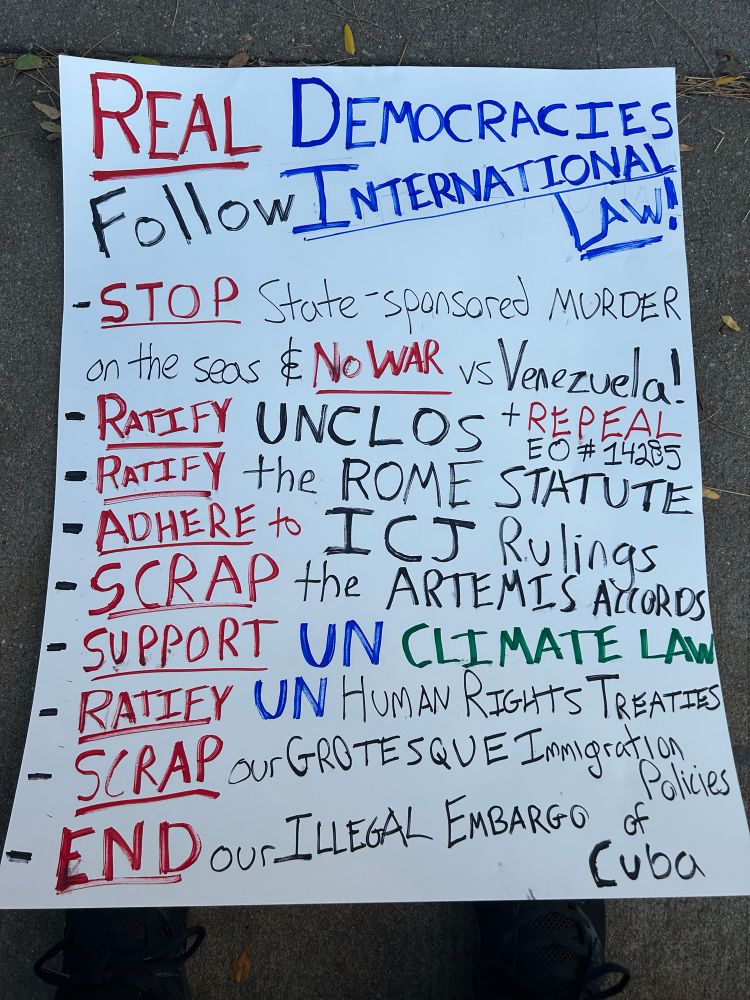 REAL DEMOCRACIES
Follow INTERNATIONAL
LAW!
- STOP State-sponsored MURDER
on the seas & No WAR vs Venezuela!
- RATIFY UNCLOS + REPEAL
EO # 14285
- RATIFY the ROME STATUTE
- ADHERE to ICJ Rulings
- SCRAP the ARTEMIS ACCORDS
- SUPPORT UN CLIMATE LAW
- RATIFY UN HUMAN RIGHTS TREATIES
- SCRAP our GROTESQUE Immigration
Policies
- END our ILLEGAL EMBARGO of
Cuba